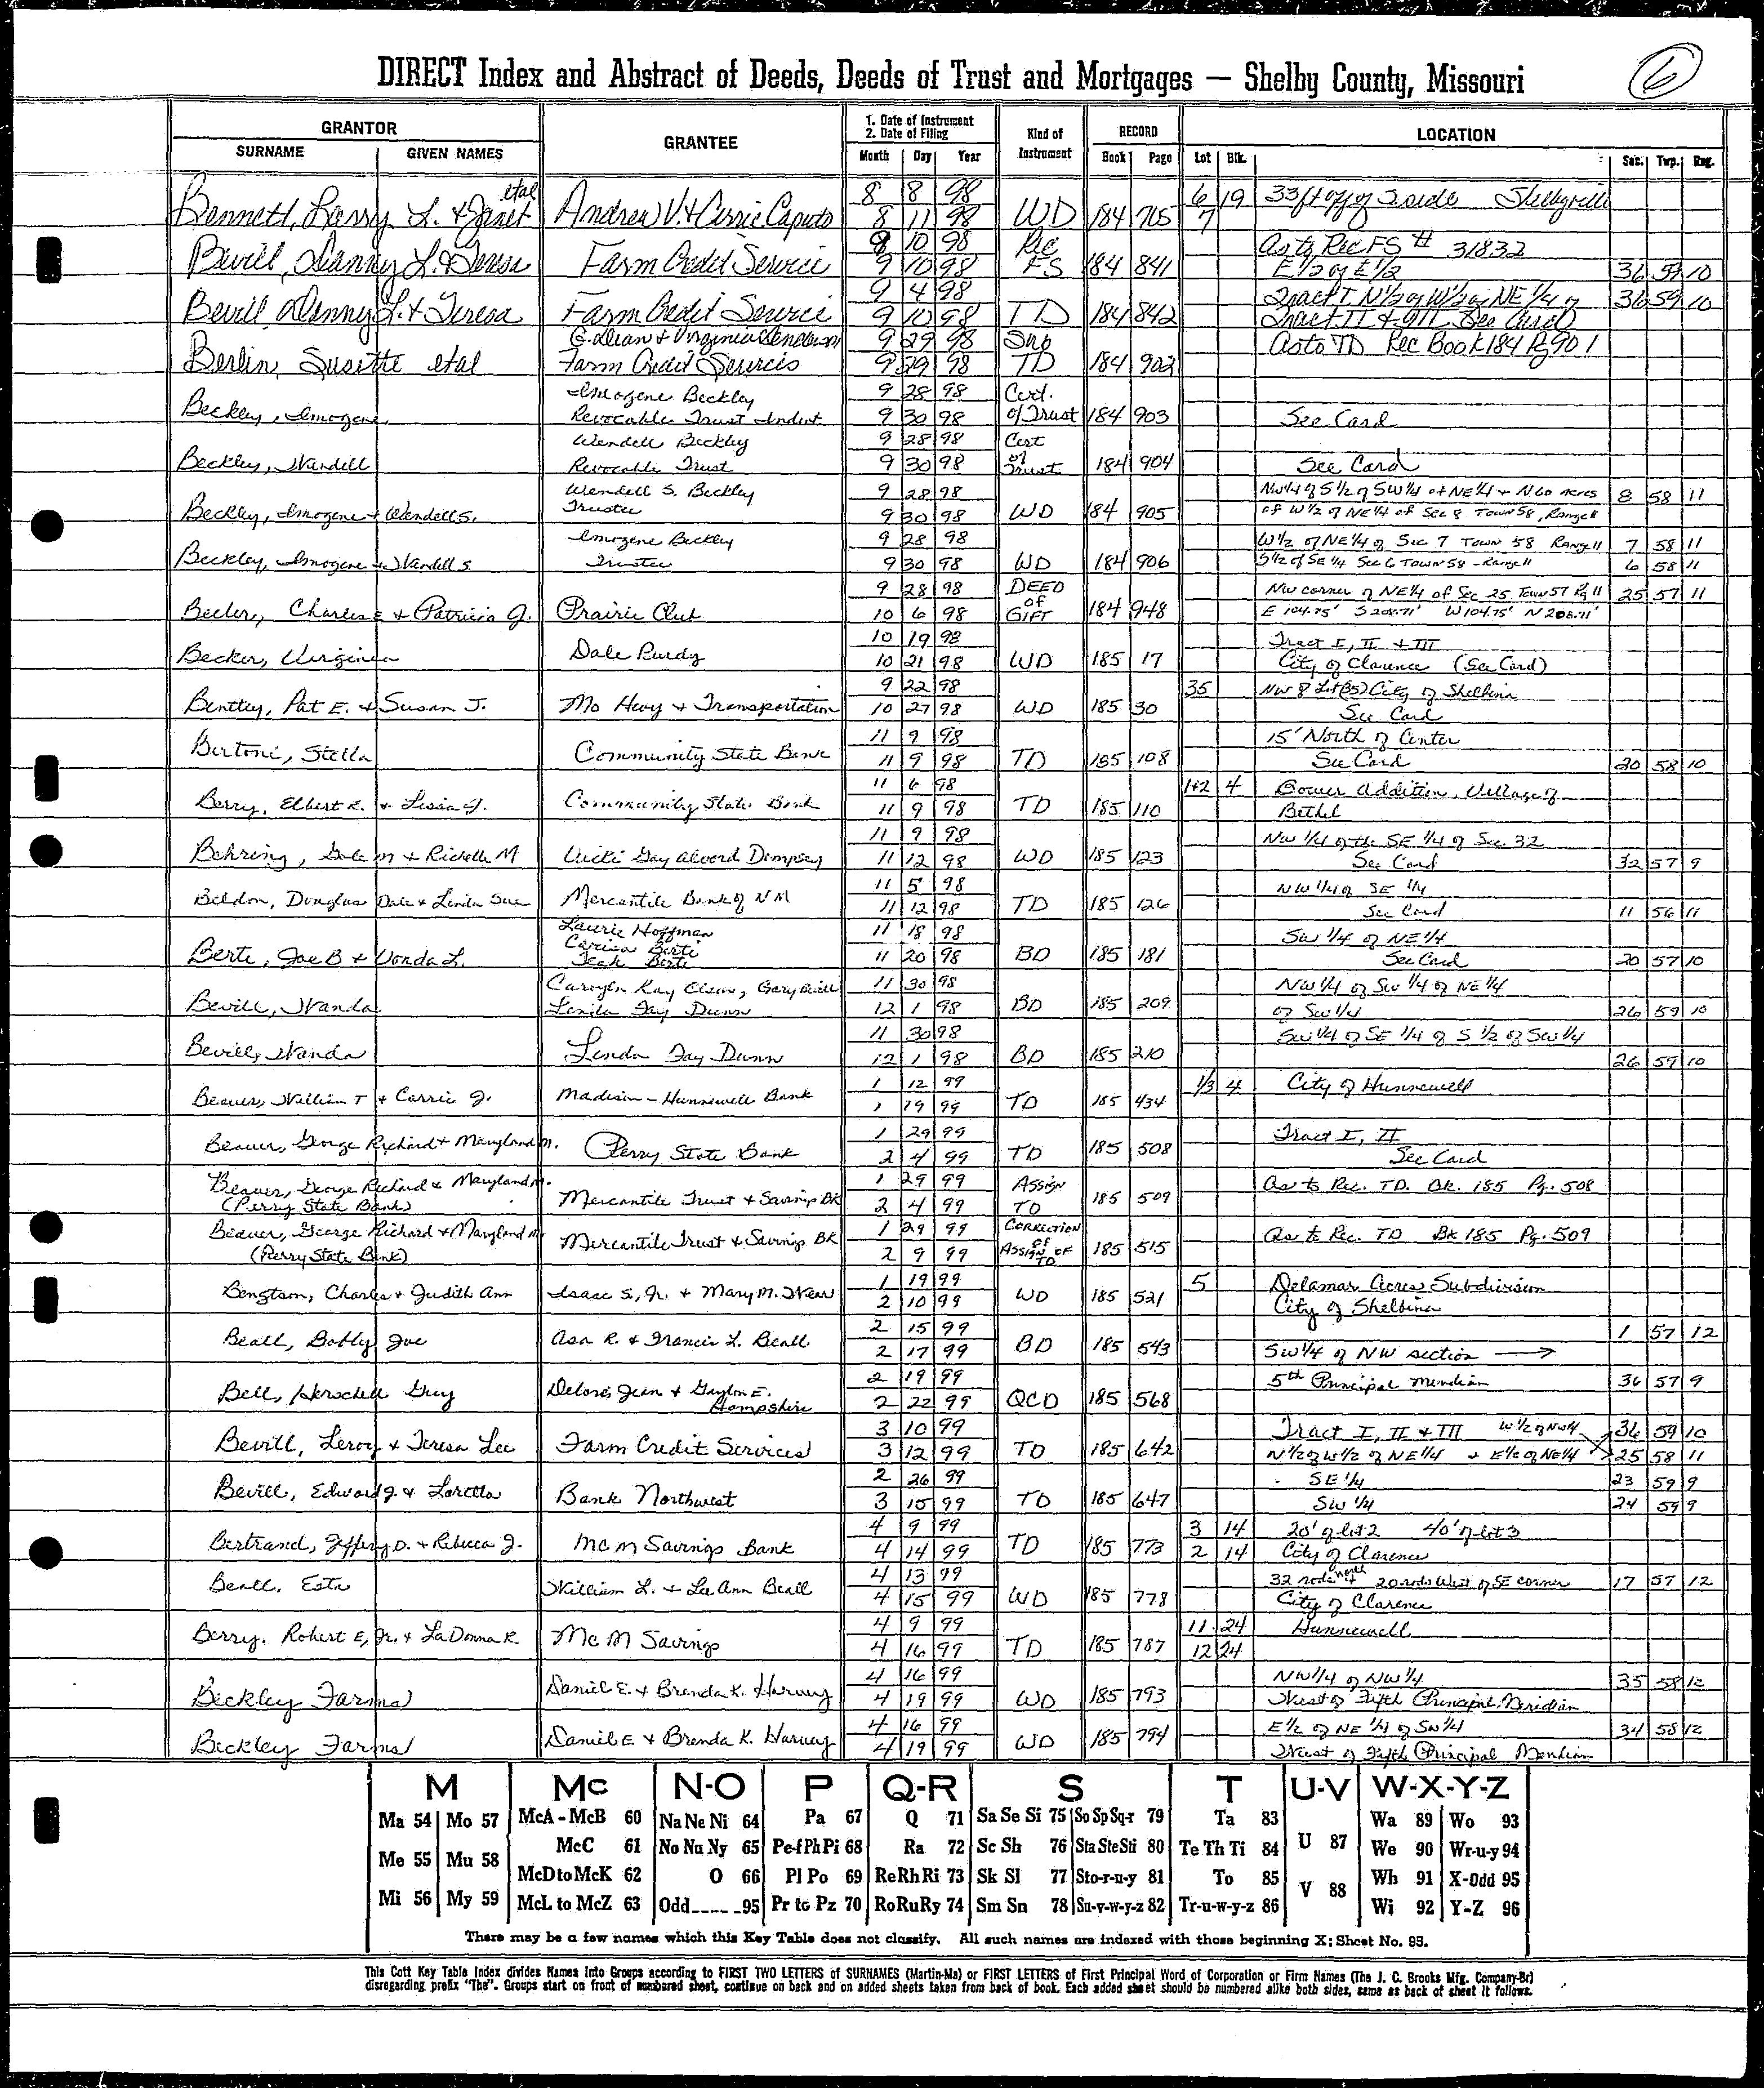 6
DIRECT Index and Abstract of Deeds, Deeds of Trust and Mortgages — Shelby County, Missouri
GRANTOR GRANTEE 1. Date of Instrument 2. Date of Filing Kind of Instrument RECORD LOCATION
SURNAME GIVEN NAMES Month Day Year Book Page Lot Blk. Sec. Twp. Rng.
etal 8 8 98 6 19 33 ft off of S side Shelbyville
Bennett, Larry L. & Janet Andrew V. & Carrie Caputo 8 11 98 WD 184 705 7
9 10 98 Rec As to Rec FS # 31832
Bevill, Danny L. & Teresa Farm Credit Service 9 10 98 FS 184 841 E 1/2 of E 1/2 36 59 10
9 4 98 Tract I N 1/2 of W 1/2 of NE 1/4 of 36 59 10
Bevill Danny L. & Teresa Farm Credit Service 9 10 98 TD 184 842 Tract II & III See Card
C. Dean & Virginia 9 29 98 As to TD Rec Book 184 Pg 901
Berlin, Susette etal Farm Credit Services 9 29 98 TD 184 902
Imogene Beckley 9 28 98 Cert.
Beckley, Imogene Revocable Trust Indent. 9 30 98 of Trust 184 903 See Card
Wendell Beckley 9 28 98 Cert
Beckley, Wendell Revocable Trust 9 30 98 of Trust 184 904 See Card
Wendell S. Beckley 9 28 98 NW 1/4 of S 1/2 of SW 1/4 of NE 1/4 + N 60 acres 8 58 11
Beckley, Imogene & Wendell S. Trustee 9 30 98 WD 184 905 of W 1/2 of NE 1/4 of Sec 8 Town 58, Range 11
Imogene Beckley 9 28 98 W 1/2 of NE 1/4 of Sec 7 Town 58 Range 11 7 58 11
Beckley, Imogene & Wendell S. Trustee 9 30 98 WD 184 906 S 1/2 of SE 1/4 Sec 6 Town 58 - Range 11 6 58 11
9 28 98 DEED NW corner of NE 1/4 of Sec 25 Town 57 Rg 11 25 57 11
Beeler, Charles E & Patricia J. Prairie Club 10 6 98 of GIFT 184 948 E 104.75' S 208.71' W 104.75' N 208.71'
10 19 98 Tract I, II & III
Becker, Virginia Dale Purdy 10 21 98 WD 185 17 City of Clarence (See Card)
9 22 98 35 NW 8 Lot (35) City of Shelbina
Bentley, Pat E. & Susan J. Mo Hwy & Transportation 10 27 98 WD 185 30 See Card
11 9 98 15' North of Center
Bertoni, Stella Community State Bank 11 9 98 TD 185 108 See Card 20 58 10
11 6 98 1+2 4 Bower Addition, Village of
Berry, Elbert E. & Lissia J. Community State Bank 11 9 98 TD 185 110 Bethel
11 9 98 NW 1/4 of the SE 1/4 of Sec. 32
Behring, Dale M & Richelle M Vicki Gay Alvord Dempsey 11 12 98 WD 185 123 See Card 32 57 9
11 5 98 NW 1/4 of SE 1/4
Beldon, Douglas Dale & Linda Sue Mercantile Bank of NM 11 12 98 TD 185 126 See Card 11 56 11
Laurie Hoffman 11 18 98 SW 1/4 of NE 1/4
Berti, Joe B & Vonda L. Carisa Berti 11 20 98 BD 185 181 See Card 20 57 10
Berti
Carolyn Kay Olson, Gary Bevill 11 30 98 NW 1/4 of SW 1/4 of NE 1/4
Bevill, Wanda Linda Fay Dunn 12 1 98 BD 185 209 of SW 1/4 26 59 10
11 30 98 SW 1/4 of SE 1/4 of S 1/2 of SW 1/4
Bevill, Wanda Linda Fay Dunn 12 1 98 BD 185 210 26 59 10
1 12 99 1/3 4 City of Hunnewell
Beaver, William T & Carrie J. Madison-Hunnewell Bank 1 19 99 TD 185 434
1 29 99 Tract I, II
Beaver, George Richard & Maryland M. Perry State Bank 2 4 99 TD 185 508 See Card
Beaver, George Richard & Maryland M. 1 29 99 Assign As to Rec. TD. Bk. 185 Pg. 508
(Perry State Bank) Mercantile Trust & Savings BK 2 4 99 TD 185 509
Beaver, George Richard & Maryland M 1 29 99 Correction As to Rec. TD Bk 185 Pg. 509
(Perry State Bank) Mercantile Trust & Savings BK 2 9 99 of Assign of TD 185 515
1 19 99 5 Delamar Acres Subdivision
Bengtson, Charles & Judith Ann Isaac S., Jr. & Mary M. Wear 2 10 99 WD 185 521 City of Shelbina
2 15 99 1 57 12
Beall, Bobby Joe Asa R. & Francis L. Beall 2 17 99 BD 185 543 SW 1/4 of NW section →
2 19 99 5th Principal Meridian 36 57 9
Bell, Herschell Guy Delores Jean & Gaylon E. Hampshire 2 22 99 QCD 185 568
3 10 99 Tract I, II & III W 1/2 of NW 1/4 36 59 10
Bevill, Leroy & Teresa Lee Farm Credit Services 3 12 99 TD 185 642 N 1/2 of W 1/2 of NE 1/4 + E 1/2 of NE 1/4 25 58 11
2 26 99 SE 1/4 23 59 9
Bevill, Edward J. & Loretta Bank Northwest 3 15 99 TD 185 647 SW 1/4 24 59 9
4 9 99 3 14 20' of lot 2 40' of lot 3
Bertrand, Jeffery D. & Rebecca J. MCM Savings Bank 4 14 99 TD 185 773 2 14 City of Clarence
4 13 99 32 rods north + 20 rods West of SE corner 17 57 12
Beall, Esta William L. & Lee Ann Beall 4 15 99 WD 185 778 City of Clarence
4 9 99 11 24 Hunnewell
Berry, Robert E, Jr. & LaDonna R. MCM Savings 4 16 99 TD 185 787 12 24
4 16 99 NW 1/4 of NW 1/4 35 58 12
Beckley Farms Daniel E. & Brenda K. Harvey 4 19 99 WD 185 793 West of Fifth Principal Meridian
4 16 99 E 1/2 of NE 1/4 of SW 1/4 34 58 12
Beckley Farms Daniel E. & Brenda K. Harvey 4 19 99 WD 185 794 West of Fifth Principal Meridian
M Mc N-O P Q-R S T U-V W-X-Y-Z
Ma 54 Mo 57 McA - McB 60 Na Ne Ni 64 Pa 67 Q 71 Sa Se Si 75 So Sp Sq-r 79 Ta 83 U 87 Wa 89 Wo 93
Me 55 Mu 58 McC 61 No Nu Ny 65 Pe-f Ph Pi 68 Ra 72 Sc Sh 76 Sta Ste Sti 80 Te Th Ti 84 We 90 Wr-u-y 94
McD to McK 62 O 66 Pl Po 69 Re Rh Ri 73 Sk Sl 77 Sto-r-u-y 81 To 85 V 88 Wh 91 X-Odd 95
Mi 56 My 59 McL to McZ 63 Odd 95 Pr to Pz 70 Ro Ru Ry 74 Sm Sn 78 Su-v-w-y-z 82 Tr-u-w-y-z 86 Wi 92 Y-Z 96
There may be a few names which this Key Table does not classify. All such names are indexed with those beginning X; Sheet No. 95.
This Cott Key Table Index divides Names into Groups according to FIRST TWO LETTERS of SURNAMES (Martin-Ma) or FIRST LETTERS of First Principal Word of Corporation or Firm Names (The J. C. Brooks Mfg. Company-Br)
disregarding prefix "The". Groups start on front of numbered sheet, continue on back and on added sheets taken from back of book. Each added sheet should be numbered alike both sides, same as back of sheet it follows.